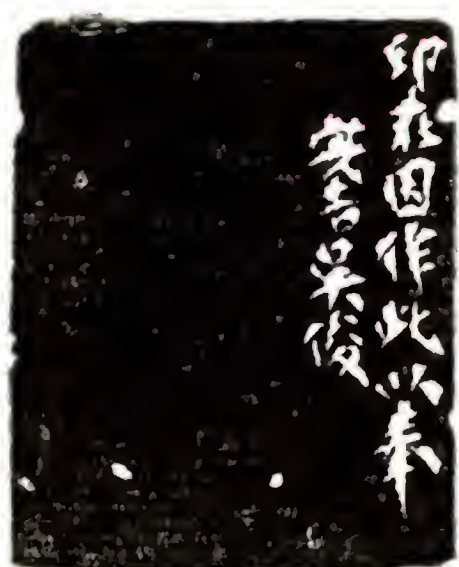 印因作此以奉
安吉吳俊